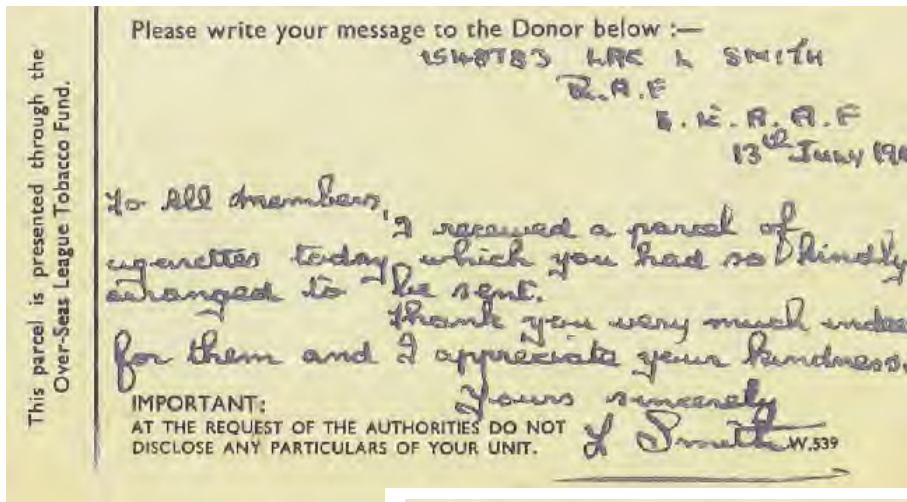 This parcel is presented through the
Over-Seas League Tobacco Fund.
Please write your message to the Donor below :—
1548783 LAC L SMITH
R.A.F
R.A.F
13th July
To All members,
I received a parcel of
cigarettes today, which you had so kindly
arranged to be sent.
Thank you very much
for them and I appreciate your kindness.
Yours sincerely
L Smith
IMPORTANT:
AT THE REQUEST OF THE AUTHORITIES DO NOT
DISCLOSE ANY PARTICULARS OF YOUR UNIT.
W.539